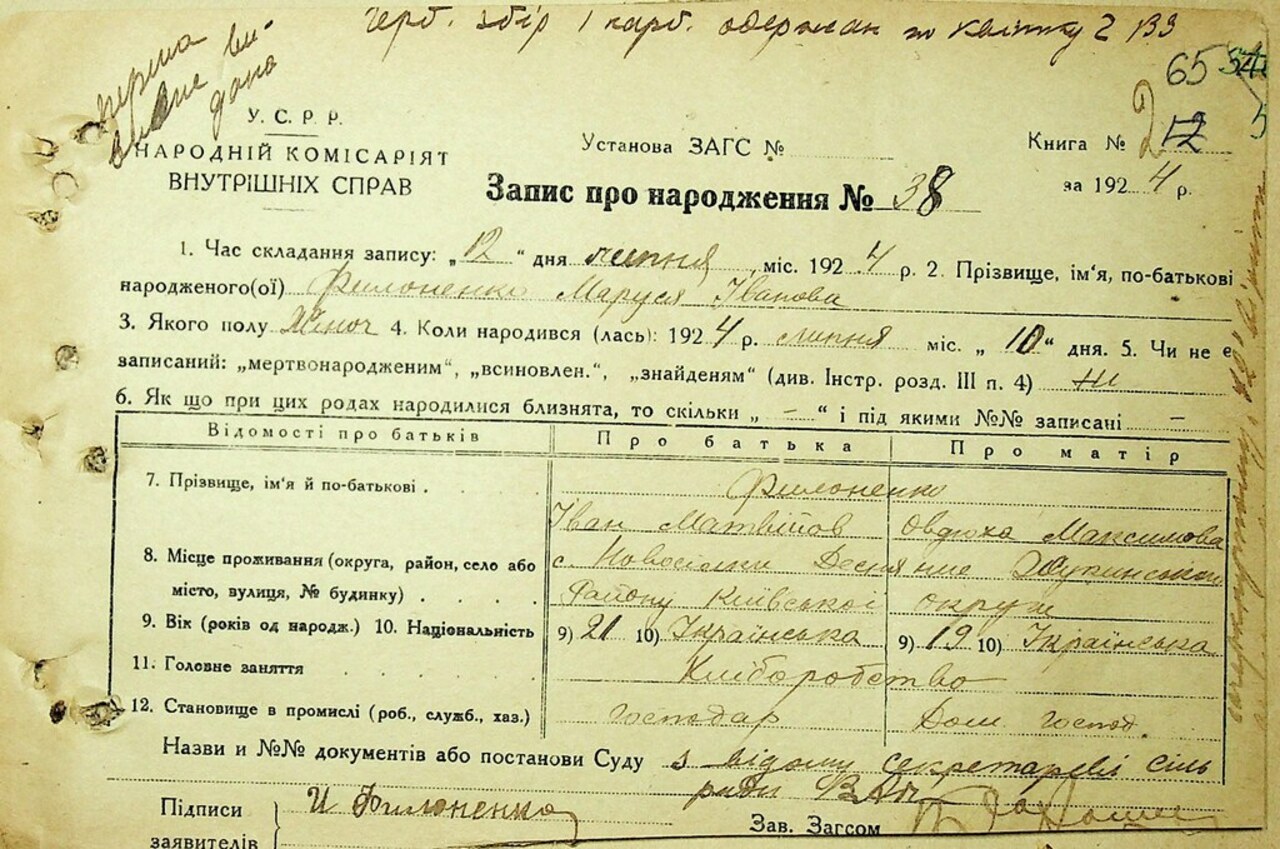 герб. збір 1 карб. одержан по квітку 2 133
перша
виписа ви-
дана
65
У. С. Р. Р.
НАРОДНІЙ КОМІСАРІЯТ
ВНУТРІШНІХ СПРАВ
Установа ЗАГС №
Книга № 2 12
за 1924 р.
Запис про народження № 38
1. Час складання запису: „12“ дня липня міс. 1924 р. 2. Прізвище, ім'я, по-батькові
народженого(ої) Филоненко Маруся Іванова
3. Якого полу Жіноч 4. Коли народився (лась): 1924 р. липня міс. „10“ дня. 5. Чи не є
записаний: „мертвонародженим“, „всиновлен.“, „знайденям“ (див. Інстр. розд. III п. 4) ні
6. Як що при цих родах народилися близнята, то скільки „ – “ і під якими №№ записані –
Відомості про батьків Про батька Про матір
7. Прізвище, ім'я й по-батькові . Филоненко
Іван Матвіїов Овдюха Максимова
8. Місце проживання (округа, район, село або с. Новосілки Десня
місто, вулиця, № будинку) . . . . . Району Київської округи
9. Вік (років од народж.) 10. Національність 9) 21 10) Українська 9) 19 10) Українська
11. Головне заняття Хліборобство
12. Становище в промислі (роб., служб., хаз.) Господар Дом. Господ.
Назви и №№ документів або постанови Суду з відому секретареві сіль
ради
Підписи
заявителів И Филоненко
Зав. Загсом